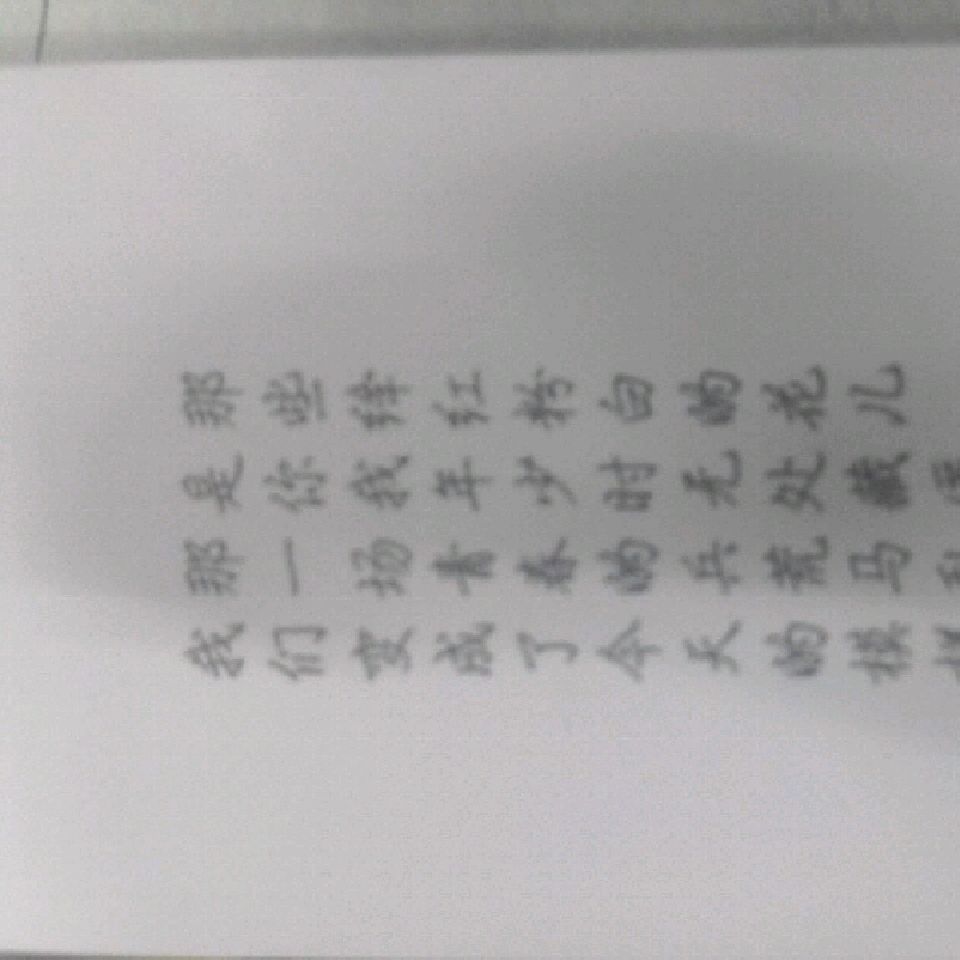 那些绛红粉白的花儿
是你我年少时无处藏
那一场青春的兵荒马乱
我们变成了今天的模样